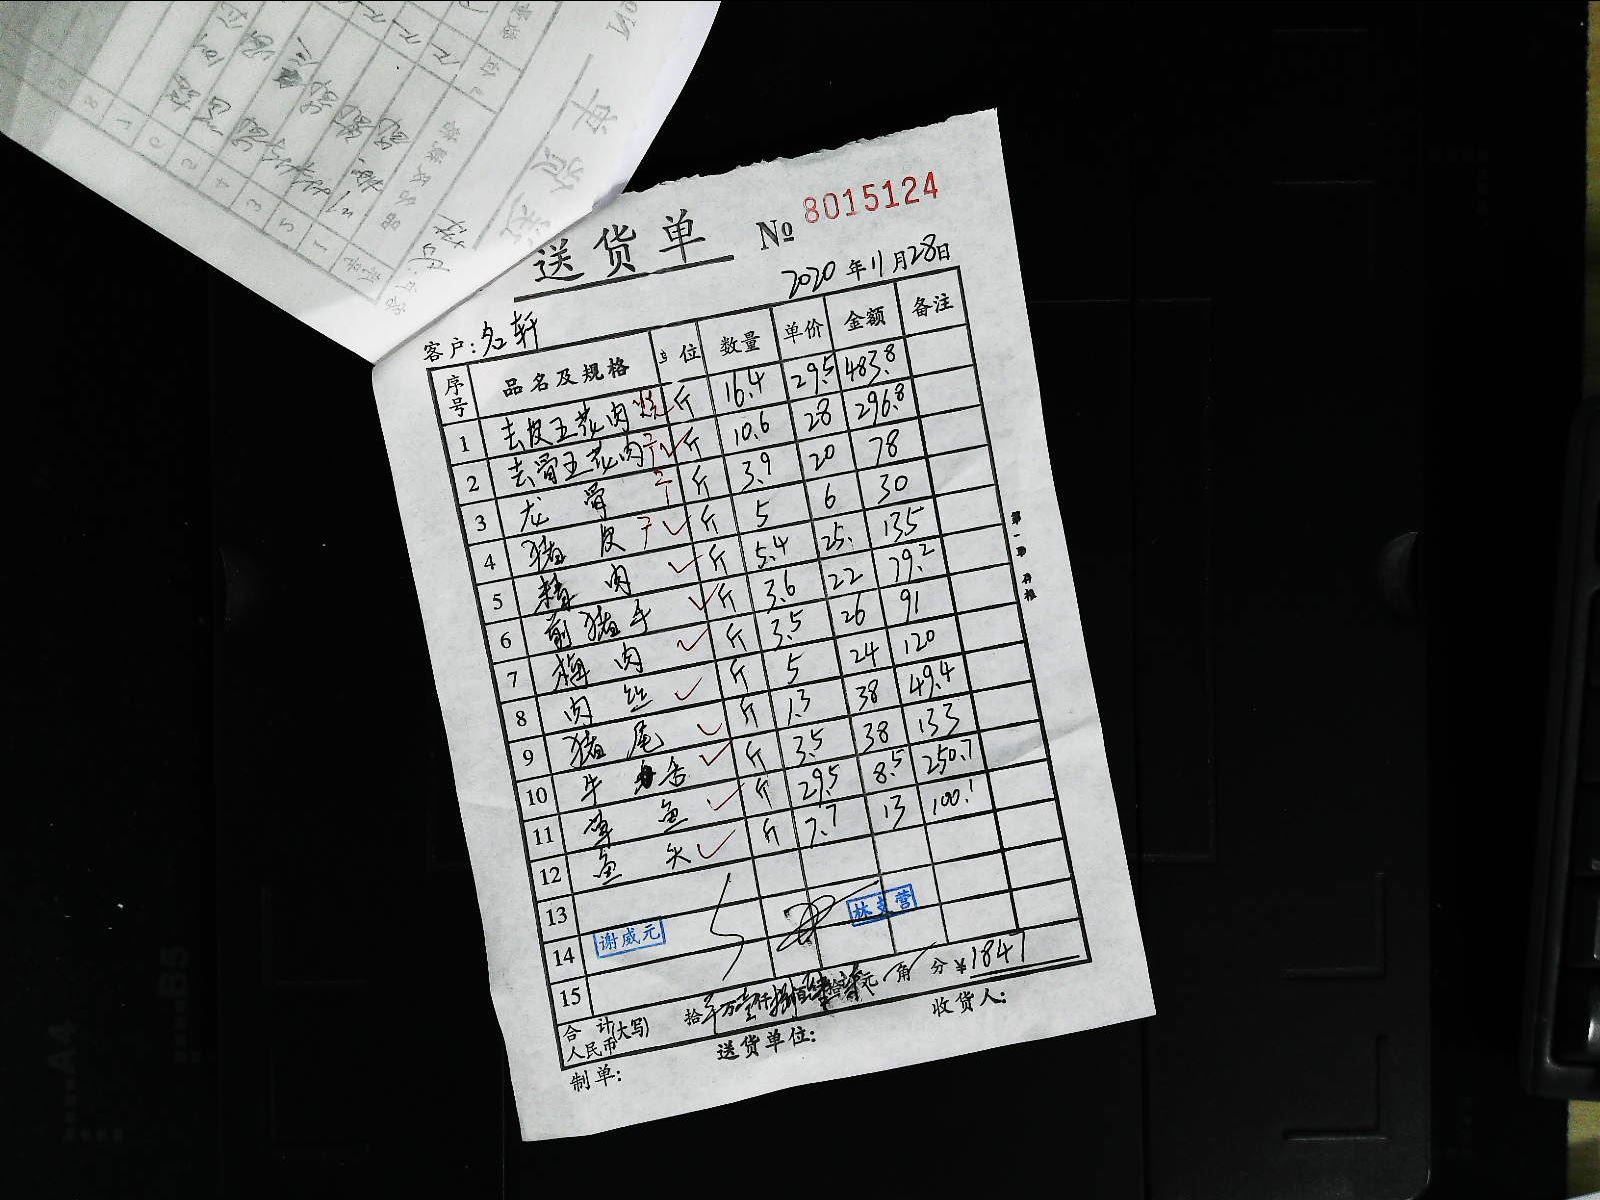 送货单 № 8015124
2020年11月28日
客户:名轩
序号 品名及规格 单位 数量 单价 金额 备注
1 去皮五花肉 斤 16.4 29.5 483.8
2 去骨五花肉 斤 10.6 28 296.8
3 龙骨 斤 3.9 20 78
4 猪皮 斤 5 6 30
5 精肉 斤 5.4 25. 135
6 前猪手 斤 3.6 22 79.2
7 梅肉 斤 3.5 26 91
8 肉丝 斤 5 24 120
9 猪尾 斤 1.3 38 49.4
10 牛舌 斤 3.5 38 133
11 草鱼 斤 29.5 8.5 250.7
12 鱼头 斤 7.7 13 100.1
13
14 谢威元 林支营
15
合计人民币(大写) 拾 万壹仟捌佰肆拾柒元 角 分 ¥1847
制单: 送货单位: 收货人:
第一联 存根